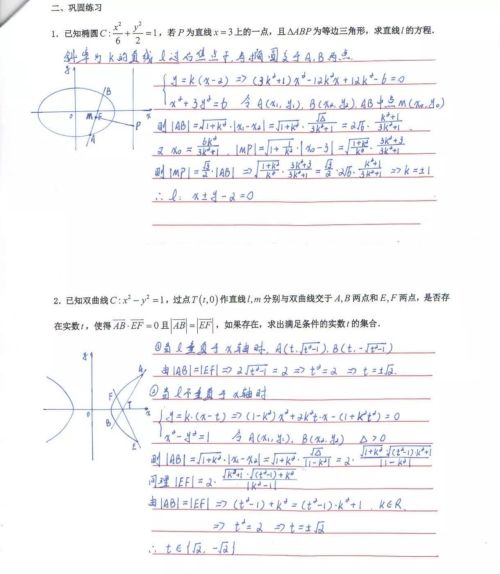 二、巩固练习
1. 已知椭圆 C: x²/6 + y²/2 = 1，若 P 为直线 x = 3 上的一点，且 △ABP 为等边三角形，求直线 l 的方程.
斜率为 k 的直线 l 过右焦点 F, 与椭圆交于 A, B 两点.
{ y = k(x-2) => (3k²+1)x² - 12k²x + 12k² - 6 = 0
x² + 3y² = 6 令 A(x₁,y₁), B(x₂,y₂), AB 中点 M(x₀,y₀)
则 |AB| = √(1+k²)·|x₁-x₂| = √(1+k²)·√Δ/(3k²+1) = 2√6·(k²+1)/(3k²+1)
又 x₀ = 6k²/(3k²+1), |MP| = √(1+1/k²)·|x₀-3| = √((1+k²)/k²)·(3k²+3)/(3k²+1)
则 |MP| = √3/2·|AB| => √((1+k²)/k²)·(3k²+3)/(3k²+1) = √3/2·2√6·(k²+1)/(3k²+1) => k = ±1
∴ l: x ± y - 2 = 0
y
B
o
M
F
x
P
A
2. 已知双曲线 C: x² - y² = 1，过点 T(t,0) 作直线 l, m 分别与双曲线交于 A, B 两点和 E, F 两点，是否存
在实数 t，使得 AB·EF = 0 且 |AB| = |EF|，如果存在，求出满足条件的实数 t 的集合.
① 当 l 垂直于 x 轴时, A(t, √(t²-1)), B(t, -√(t²-1))
由 |AB| = |EF| => 2√(t²-1) = 2 => t² = 2 => t = ±√2.
② 当 l 不垂直于 x 轴时
{ y = k·(x-t) => (1-k²)x² + 2k²t·x - (1+k²t²) = 0
x² - y² = 1 令 A(x₁,y₁), B(x₂,y₂) Δ > 0
则 |AB| = √(1+k²)·|x₁-x₂| = √(1+k²)·√Δ/|1-k²| = 2·√(1+k²)·√((t²-1)·k²+1)/|1-k²|
同理 |EF| = 2·√(k²+1)·√((t²-1)+k²)/|k²-1|
由 |AB| = |EF| => (t²-1)+k² = (t²-1)·k²+1, k∈R
=> t² = 2 => t = ±√2
∴ t∈{√2, -√2}
y
A
F
o
B
T
x
E